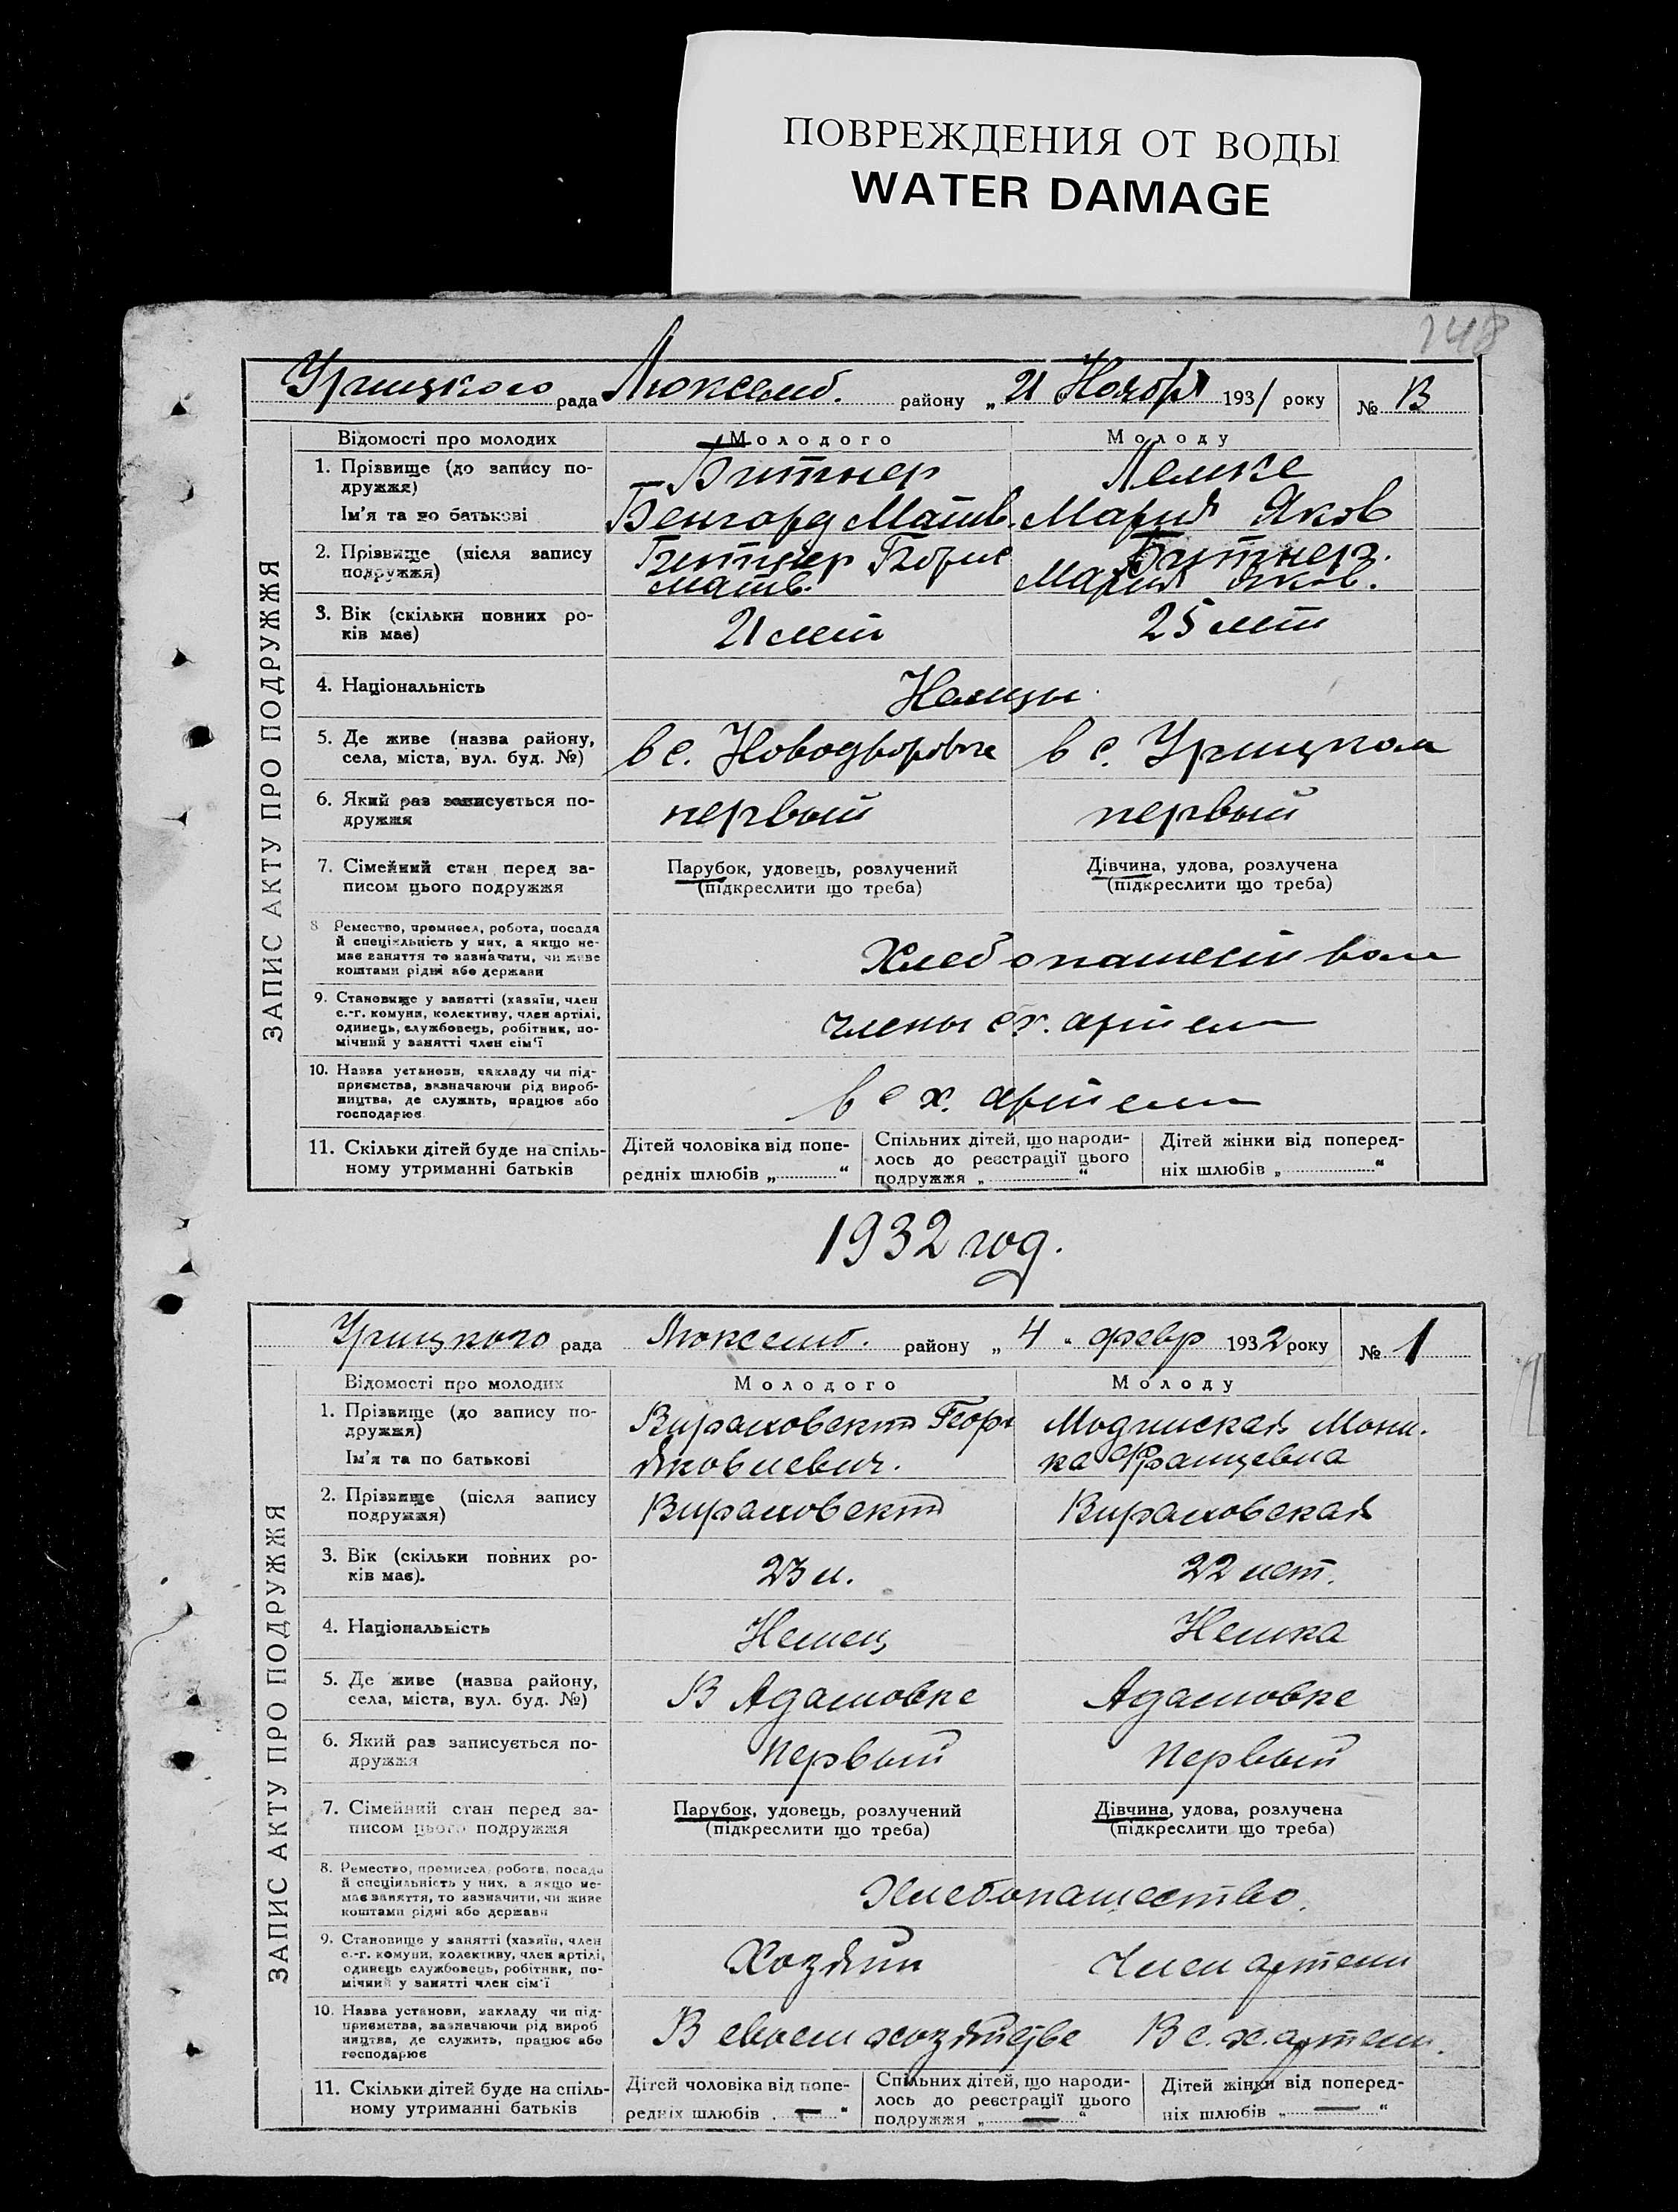 ПОВРЕЖДЕНИЯ ОТ ВОДЫ
WATER DAMAGE
148
Урицкого рада Люксемб. району „ 21 Ноября 1931 року № 13
Відомості про молодих Молодого Молоду
1. Прізвище (до запису по-
дружжя) Битнер Лемке
Ім'я та по батькові Бенгард Матв. Мария Яков
2. Прізвище (після запису Битнер Борис Битнер.
подружжя) Матв. Мария Яков.
3. Вік (скільки повних ро-
ків має) 21 лет 25 лет
4. Національність Немцы
5. Де живе (назва району,
села, міста, вул. буд. №) в с. Новодворовка в с. Урицком
6. Який раз записується по-
дружжя первый первый
7. Сімейний стан перед за- Парубок, удовець, розлучений Дівчина, удова, розлучена
писом цього подружжя (підкреслити що треба) (підкреслити що треба)
8 Ремество, промисел, робота, посада
й спеціяльність у них, а якщо не-
має заняття то зазначити, чи живе Хлебопашеством
коштами рідні або держави
9. Становище у занятті (хазяїн, член
с.-г. комуни, колективу, член артілі,
одинець, службовець, робітник, по- члены с.х. артели
мічний у занятті член сім'ї
10. Назва установи, закладу чи під-
приємства, зазначаючи рід вироб-
ництва, де служить, працює або в с х. артели
господарює
11. Скільки дітей буде на спіль- Дітей чоловіка від попе- Спільних дітей, що народи- Дітей жінки від поперед-
ному утриманні батьків редніх шлюбів „ “ лось до реєстрації цього ніх шлюбів „ “
подружжя „ “
ЗАПИС АКТУ ПРО ПОДРУЖЖЯ
1932 год.
Урицкого рада Люксемб. району „ 4 “ февр 1932 року № 1
Відомості про молодих Молодого Молоду
1. Прізвище (до запису по- Георг Мони-
дружжя)
Ім'я та по батькові Яковлевич. ка Францевна
2. Прізвище (після запису
подружжя)
3. Вік (скільки повних ро-
ків має). 23 л. 22 лет.
4. Національність Немец Немка
5. Де живе (назва району,
села, міста, вул. буд. №) В Адамовке Адамовке
6. Який раз записується по-
дружжя первый первый
7. Сімейний стан перед за- Парубок, удовець, розлучений Дівчина, удова, розлучена
писом цього подружжя (підкреслити що треба) (підкреслити що треба)
8. Ремество, промисел, робота, посада
й спеціяльність у них, а якщо не-
має заняття, то зазначити, чи живе Хлебопашество.
коштами рідні або держави
9. Становище у занятті (хазяїн, член
с.-г. комуни, колективу, член артілі,
одинець службовець, робітник, по- Хозяин Член артели
мічний у занятті член сім'ї
10. Назва установи, закладу чи під-
приємства, зазначаючи рід вироб
ництва, де служить, працює або В своем хозяйстве В с. х. артели.
господарює
11. Скільки дітей буде на спіль- Дітей чоловіка від попе- Спільних дітей, що народи- Дітей жінки від поперед-
ному утриманні батьків редніх шлюбів „ — “ лось до реєстрації цього ніх шлюбів „ — “
подружжя „ — “
ЗАПИС АКТУ ПРО ПОДРУЖЖЯ